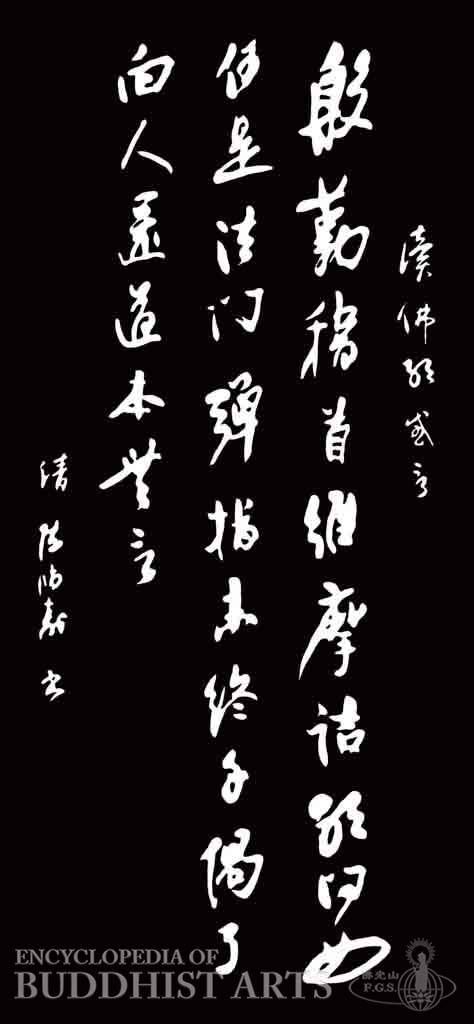 讀佛經感言
殷勤稽首維摩詰敢問如
何是法門彈指未終千偈了
向人還道本無言
清 陳鴻壽 書
ENCYCLOPEDIA OF
BUDDHIST ARTS
佛光山
F.G.S.